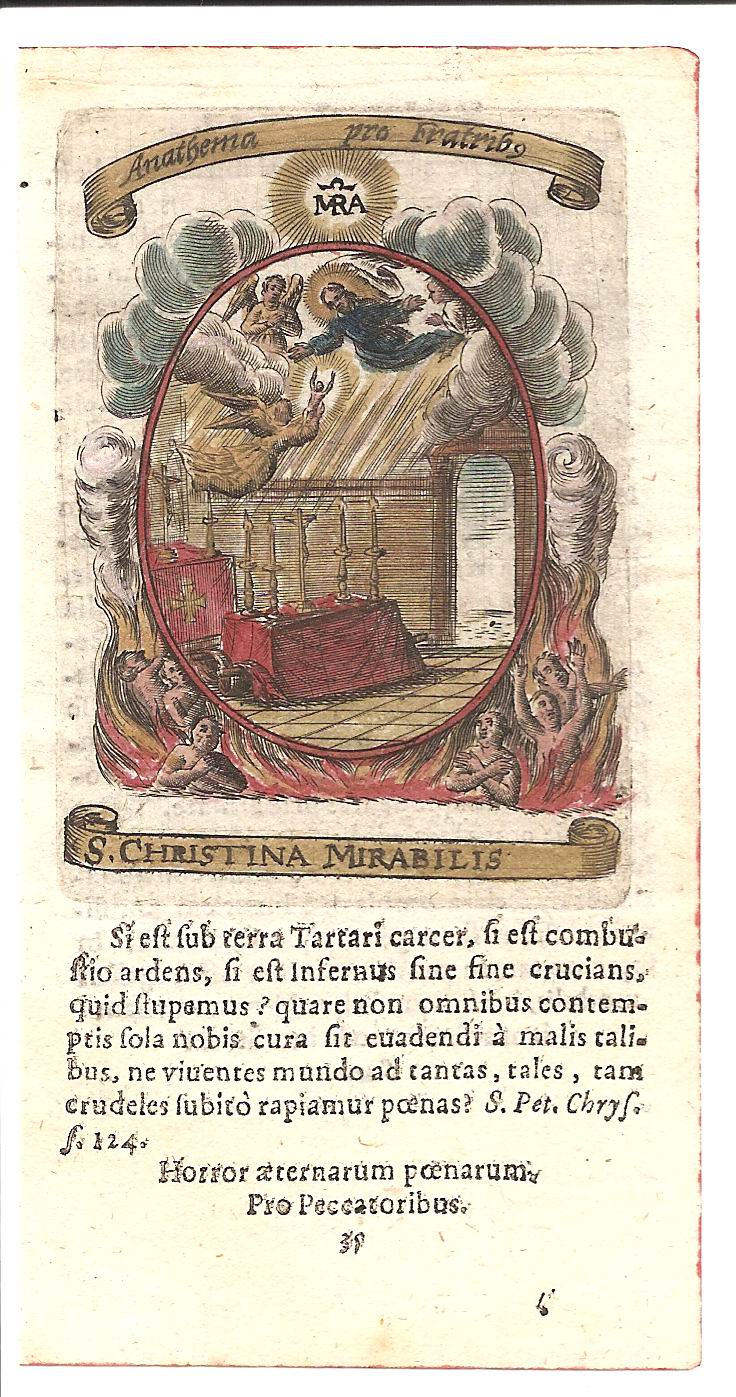 Anathema pro fratribꝰ
MRA
S. CHRISTINA MIRABILIS
Si eſt ſub terra Tartari carcer, ſi eſt combu-
ſtio ardens, ſi eſt Infernus ſine fine crucians,
quid ſtupemus? quare non omnibus contem-
ptis ſola nobis cura ſit euadendi à malis tali-
bus, ne viuentes mundo ad tantas, tales, tam
crudeles ſubitò rapiamur pœnas? S. Pet. Chryſ.
ſ. 124.
Horror æternarum pœnarum,
Pro Peccatoribus.